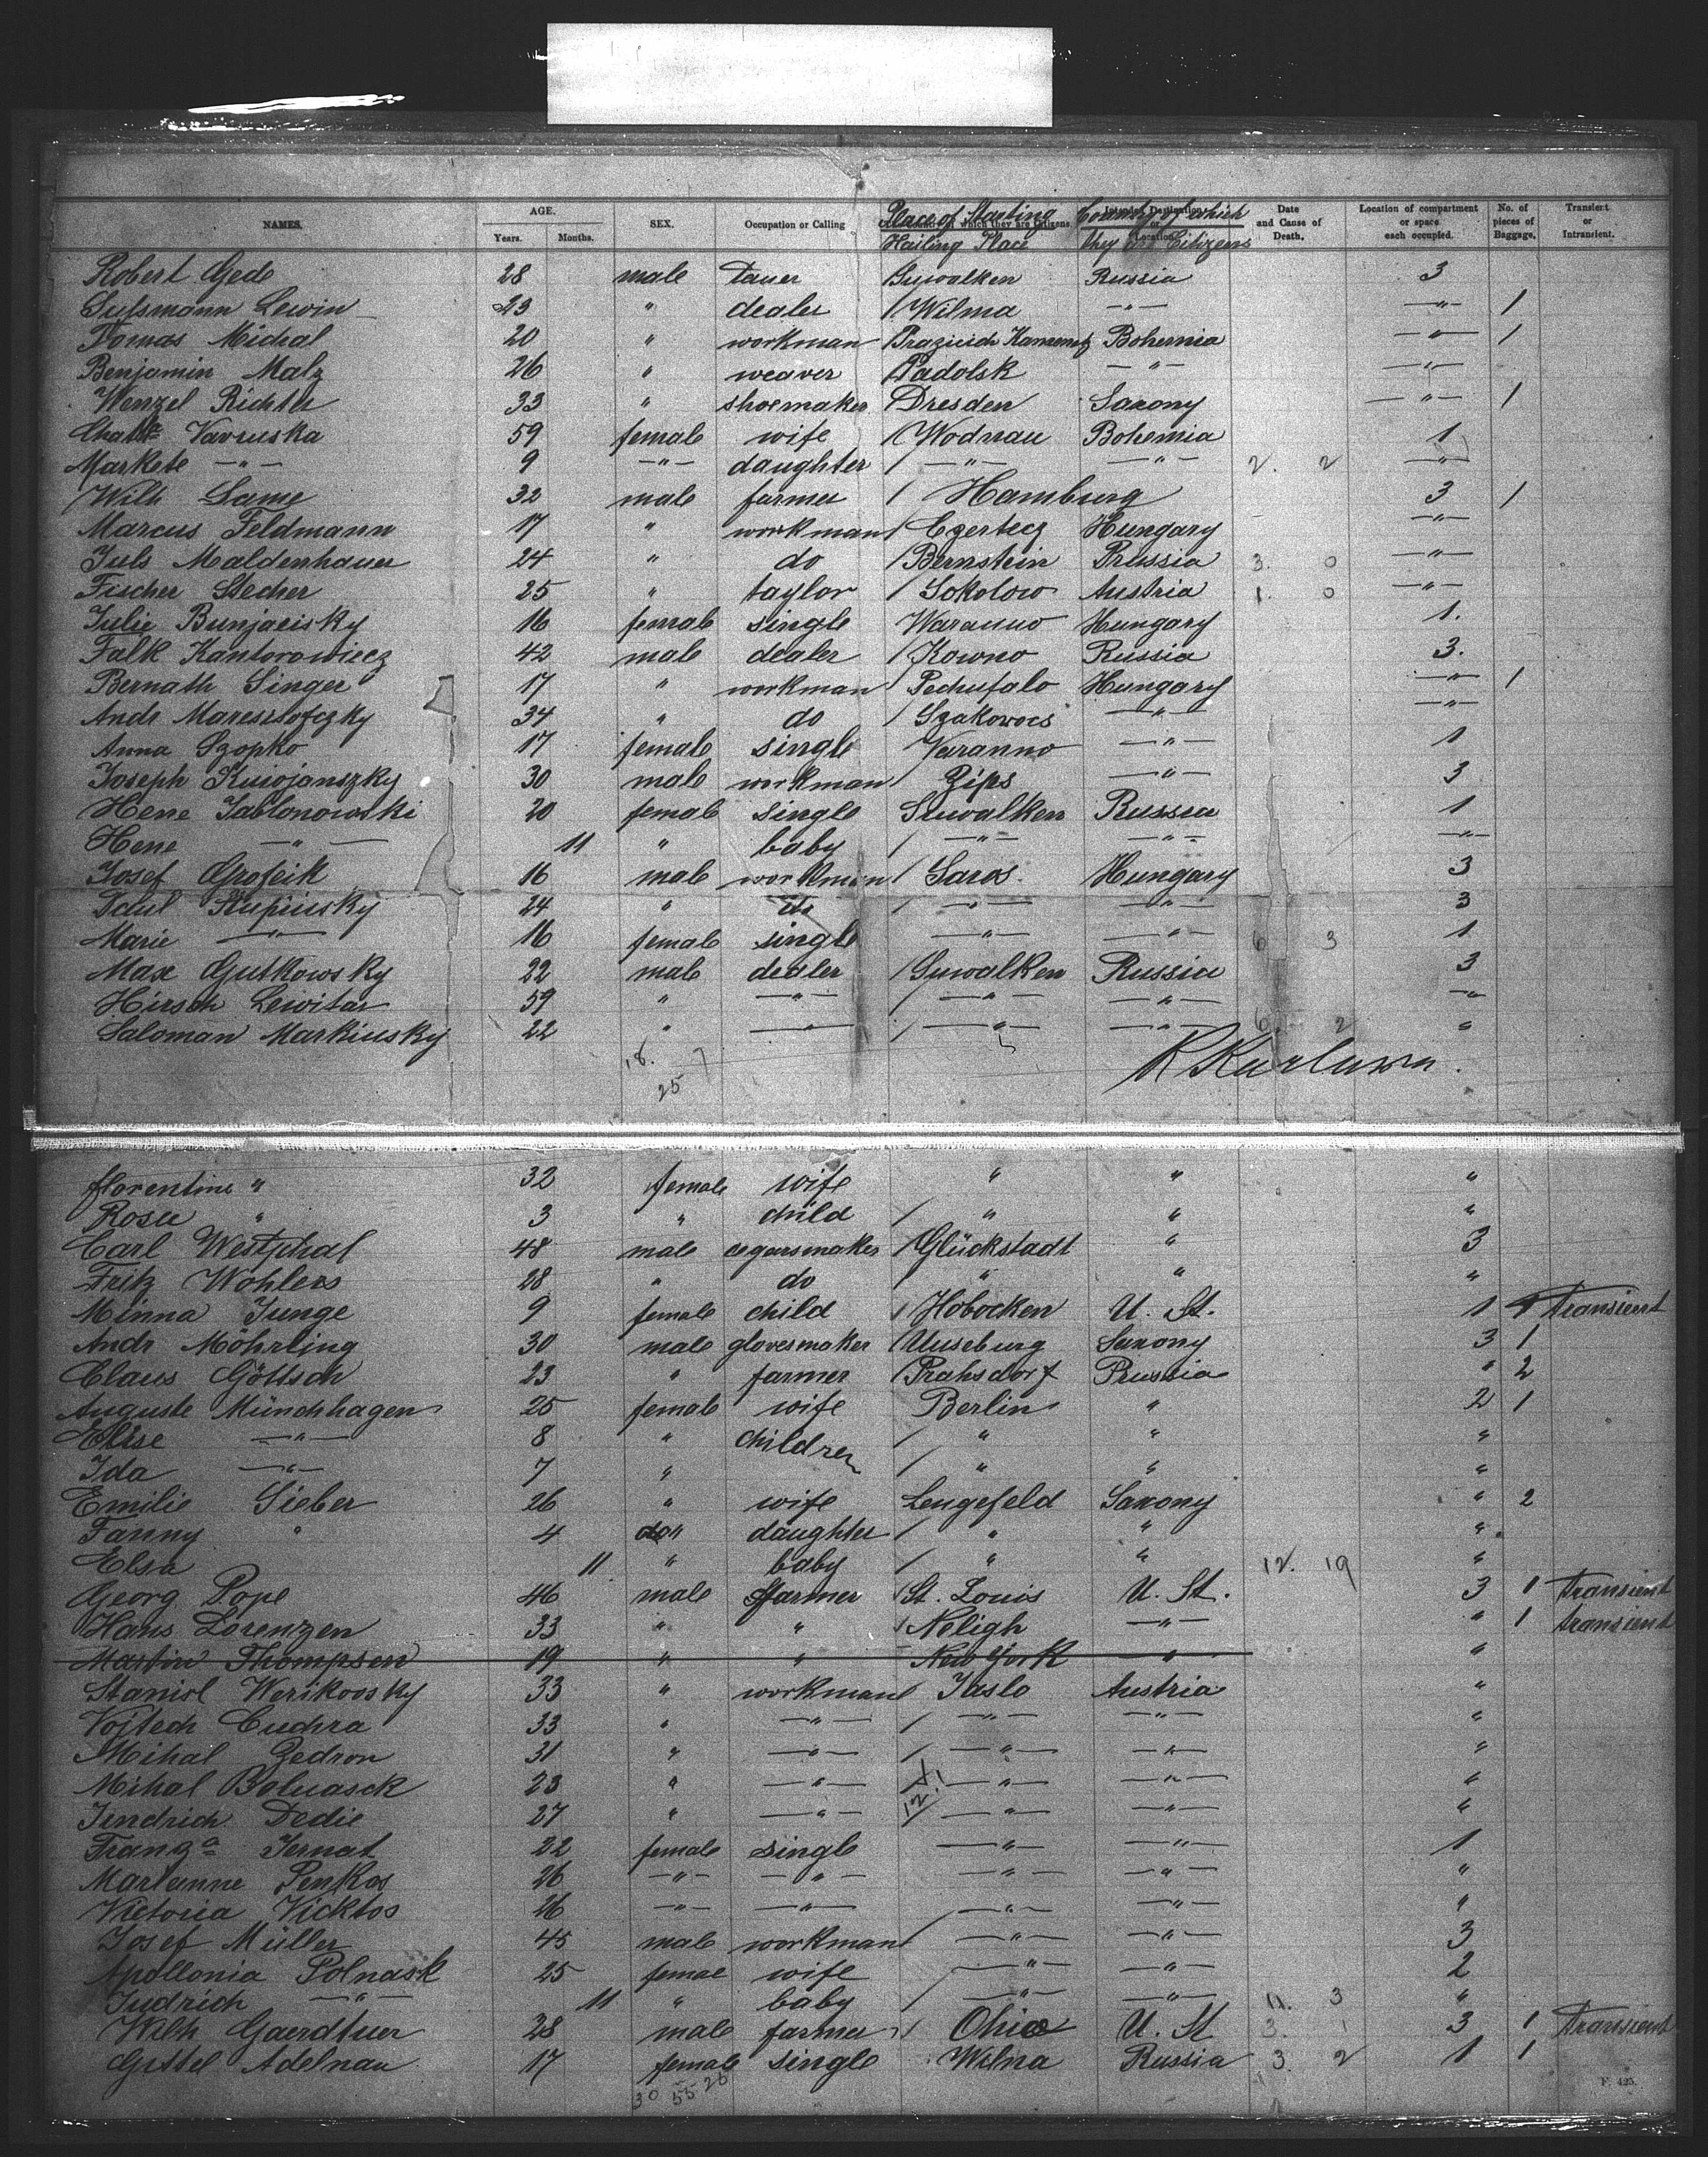 NAMES. AGE. Years. Months. SEX. Occupation or Calling Place of Starting Hailing Place Country of which they are Citizens Date and Cause of Death. Location of compartment or space each occupied. No. of pieces of Baggage. Transient or Intransient.
Robert Gede 28 male Suwalken Russia 3
Sussmann Lewin 23 " dealer / Wilma —"— —"— 1
Tomas Michal 20 " workman Kamenetz Bohemia —"— 1
Benjamin Malz 26 " weaver Padolsk —"— —"—
Wenzel Richter 33 " shoemaker Dresden Saxony —"— 1
Vavruska 59 female wife / Wodnau Bohemia 1
Markete —"— 9 —"— daughter / —"— —"— 2. 2 —"—
Wilh Lame 32 male farmer / Hamburg 3 1
Marcus Feldmann 17 " workman / Hungary —"—
Juls Maldenhauer 24 " do / Bernstein Prussia 3. 0 —"—
Fischer Stecher 25 " taylor / Sokolow Austria 1. 0 —"—
Julie 16 female single Waranno Hungary 1.
Falk Kantorowiecz 42 male dealer / Kowno Russia 3.
Bernath Singer 17 " workman Pechufalo Hungary —"— 1
Andr 34 " do / Szakowocs —"— —"—
Anna Szopko 17 female single Varanno —"— 1
Joseph 30 male workman / Zips —"— 3
Hene Jablonowski 20 female single Suwalken Russia 1
Hene —"— 11 " baby / —"— —"— —"—
Josef 16 male workman / Saros. Hungary 3
Paul 24 " do / —"— —"— 3
Marie —"— 16 female single —"— —"— 6 3 1
Max Gutkowsky 22 male dealer / Suwalken Russia 3
Hirsch Lewitas 59 " —"— / —"— —"— —"—
Saloman Markiusky 22 " —"— / —"— —"— 6. 2 "
18. 7
25
florentine " 32 female wife " " "
Rosa " 3 " child / " " "
Carl Westphal 48 male cegarsmaker / Glückstadt " 3
Fritz Wöhlers 28 " do / " " "
Minna Junge 9 female child / Hobocken U. St. 1 1 Transient
Andr Möhrling 30 male glovesmaker Saxony 3 1
Claus Göttsch 23 " farmer / Prahsdorf Prussia " 2
Auguste Münchhagen 25 female wife Berlin " 2 1
Elise —"— 8 " children / " " "
Ida —"— 7 " / " " "
Emilie Sieber 26 " wife Lengefeld Saxony " 2
Fanny " 4 " daughter / " " "
Elsa 11 " baby / " " 12. 19 "
Georg Pope 46 male farmer / St. Louis U. St. 3 1 Transient
Hans Lorenzen 33 " " / Neligh —"— " 1 transient
Martin Thompson 19 " " New York —"— "
Stanisl Werikovsky 33 " workman / Jaslo Austria "
Vojtech Cuchra 33 " —"— / —"— —"— "
Mihal Zedron 31 " —"— / —"— —"— "
Mihal 23 " —"— / —"— —"— "
Jendrich Dedie 27 " —"— / —"— —"— "
Franzª Jernat 22 female single —"— —"— 1
Marianne Penkos 26 —"— —"— —"— —"— "
Victoria Vicktos 26 —"— —"— —"— —"— "
Josef Müller 45 male workman / —"— —"— 3
Apollonia Polnask 25 femae wife —"— —"— 2
Judrich —"— 11 " baby / —"— —"— 11. 3 "
Wilh Gaerdtner 28 male farmer / Ohio U. St 3. 1 3 1 Transient
Gittel Adelnau 17 female single Wilna Russia 3. 2 1 1
30 55 25
F. 425.